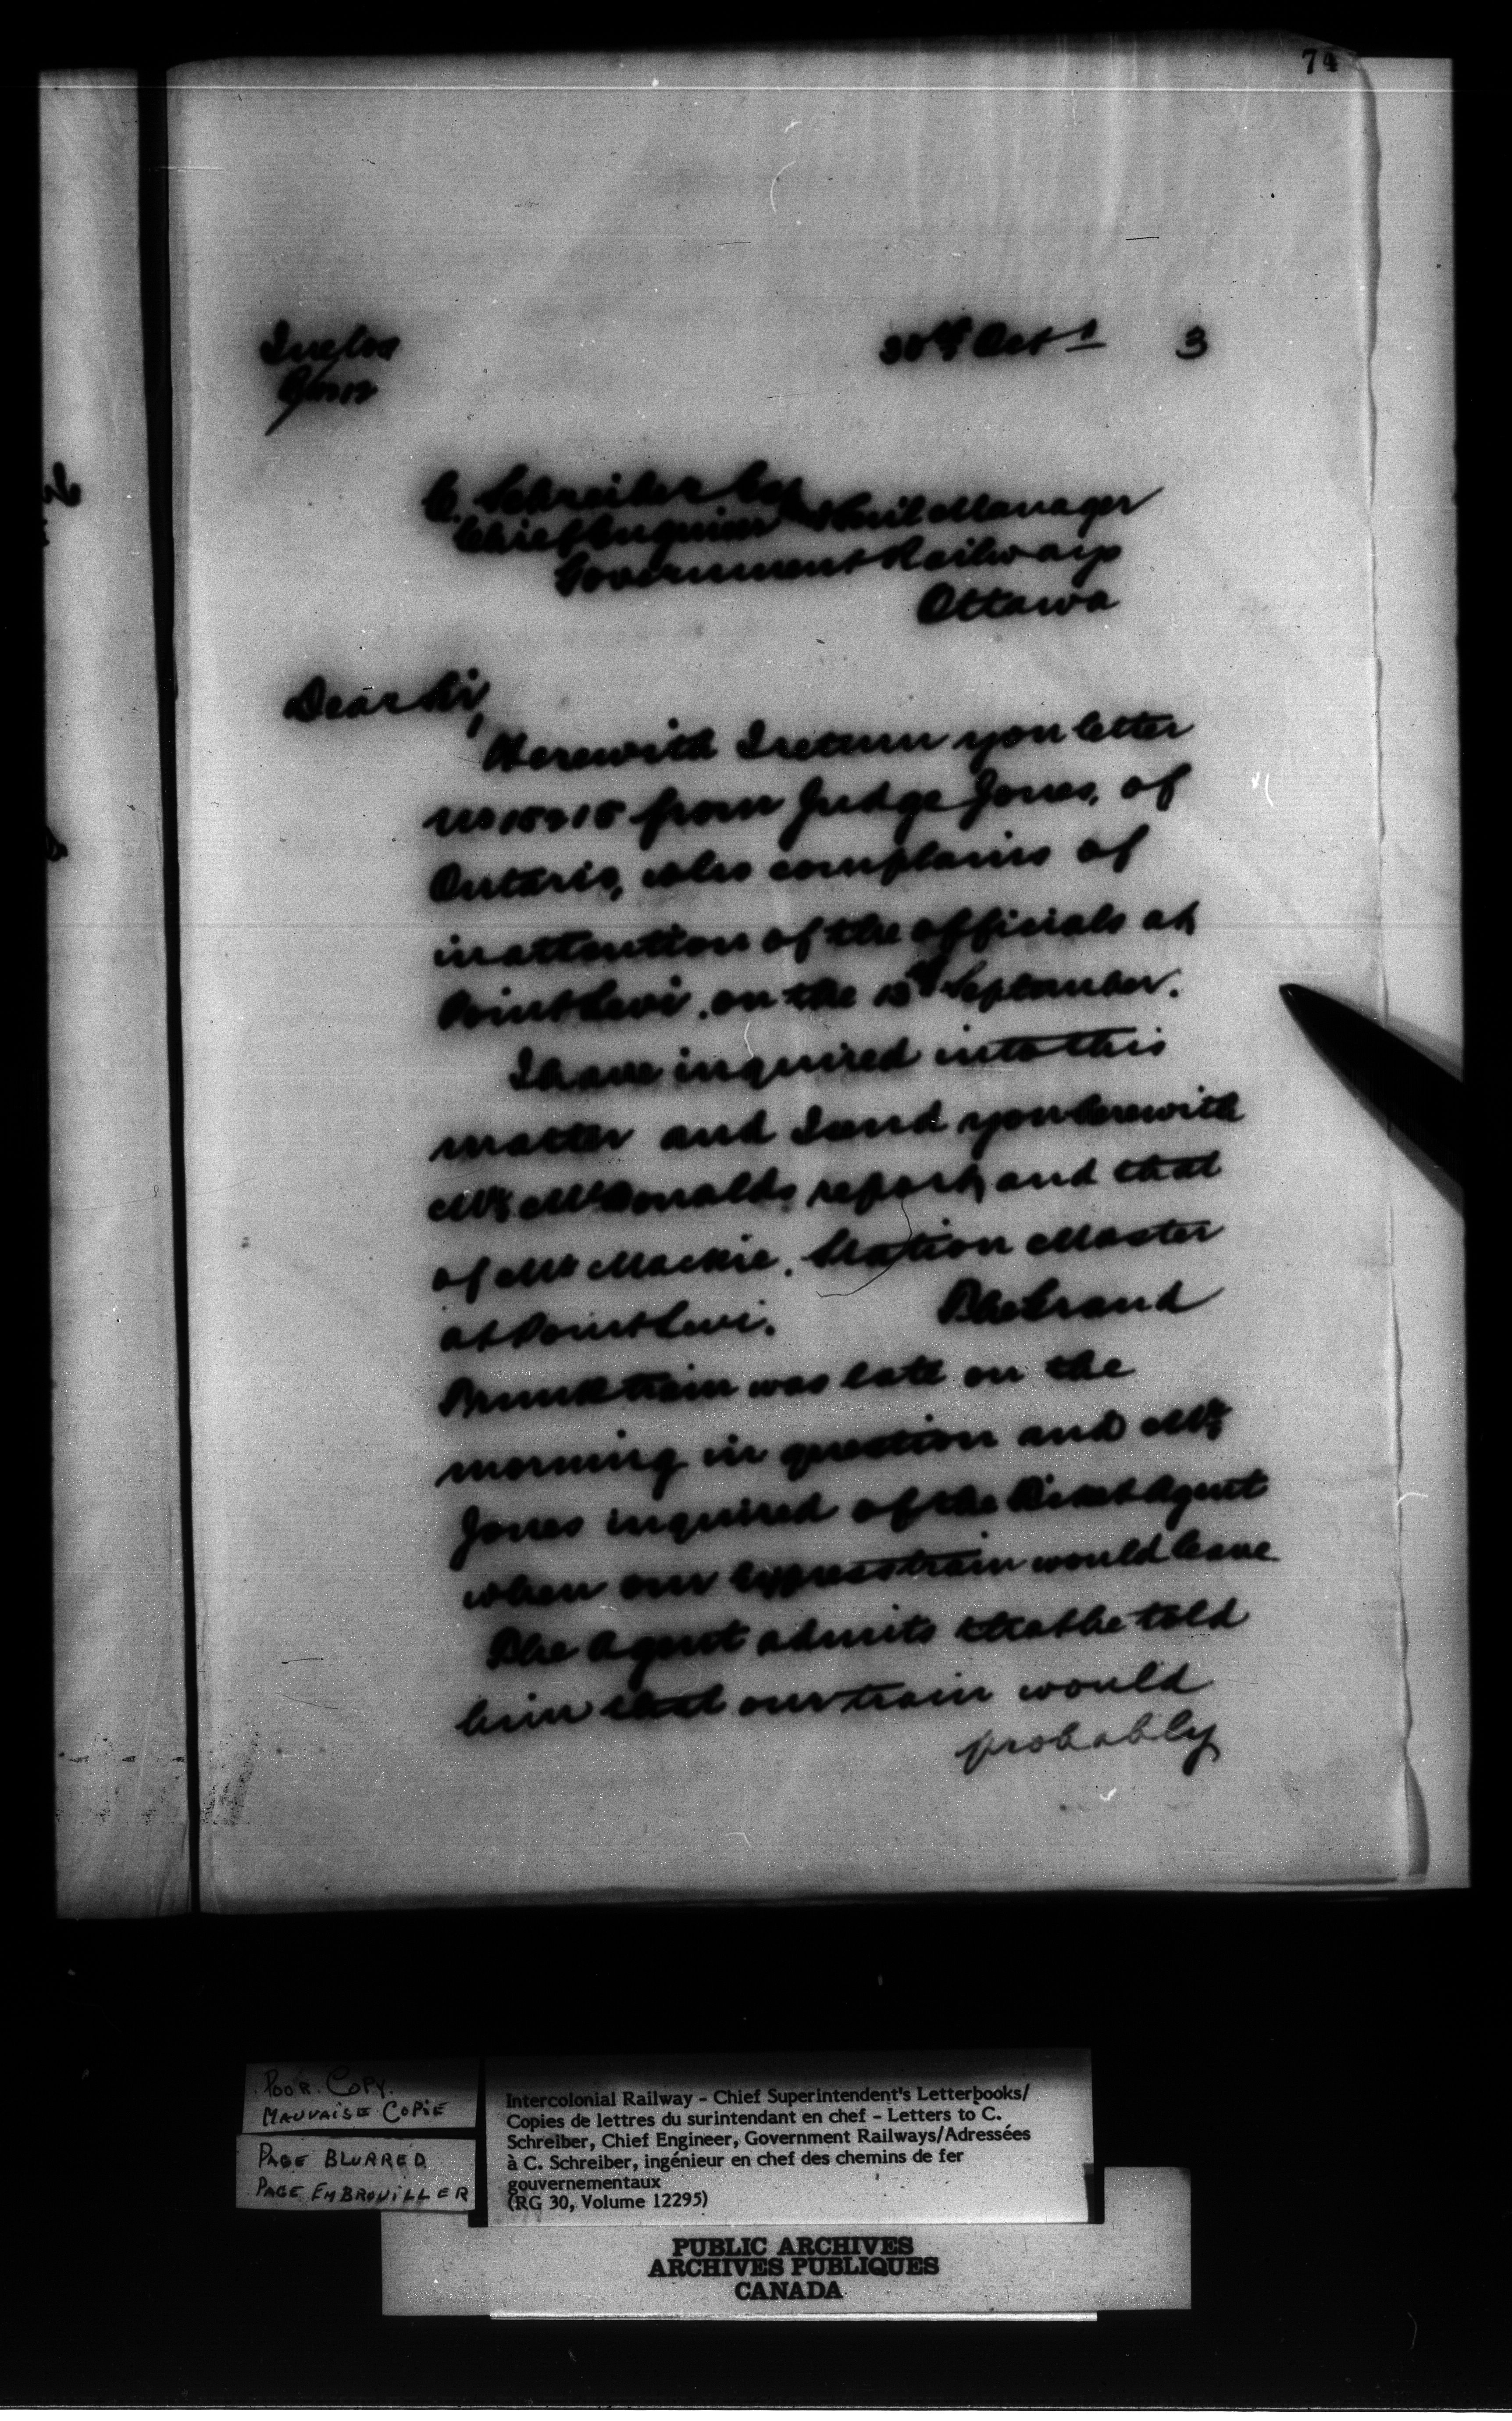 74
30th Oct 3
C. Schreiber Esq
Chief Engineer & Genl Manager
Government Railways
Ottawa
Dear Sir,
Herewith I return you letter
from Judge Jones, of
Ontario, who complains of
inattention of the officials at
Point Levi, on the 13th September.
I have inquired into this
matter and I send you herewith
Mr McDonalds report, and that
of Mr Mackie, Station Master
at Point Levi. The Grand
Trunk train was late on the
morning in question and Mr
Jones inquired of the Ticket Agent
when our Express train would leave
The Agent admits that he told
him that our train would
probably
POOR COPY.
MAUVAISE COPIE
PAGE BLURRED
PAGE EMBROUILLER
Intercolonial Railway - Chief Superintendent's Letterbooks/
Copies de lettres du surintendant en chef - Letters to C.
Schreiber, Chief Engineer, Government Railways/Adressées
à C. Schreiber, ingénieur en chef des chemins de fer
gouvernementaux
(RG 30, Volume 12295)
PUBLIC ARCHIVES
ARCHIVES PUBLIQUES
CANADA